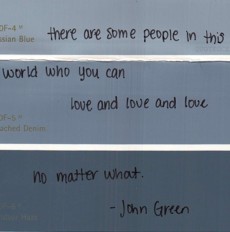 DF-4
ssian Blue
there are some people in this
world who you can
love and love and love
DF-5
ached Denim
no matter what.
- John Green